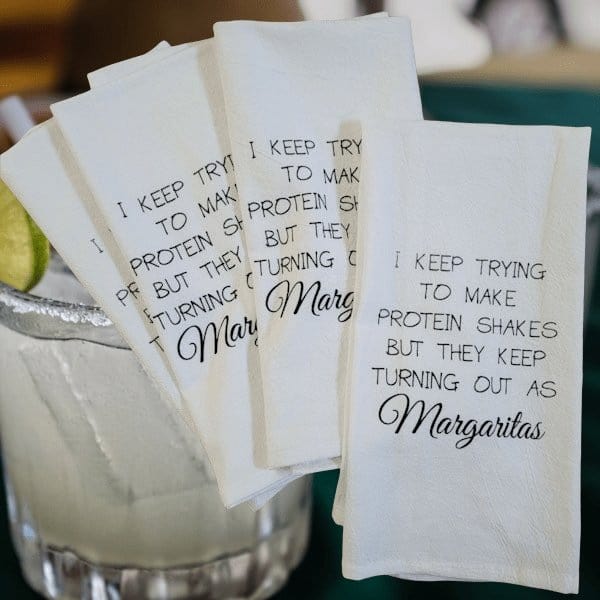 I
PR
I KEEP TRYI
TO MAK
PROTEIN SH
BUT THEY
TURNING O
Marg
I KEEP TRY
TO MAKE
PROTEIN SH
BUT THEY
TURNING O
Marga
I KEEP TRYING
TO MAKE
PROTEIN SHAKES
BUT THEY KEEP
TURNING OUT AS
Margaritas